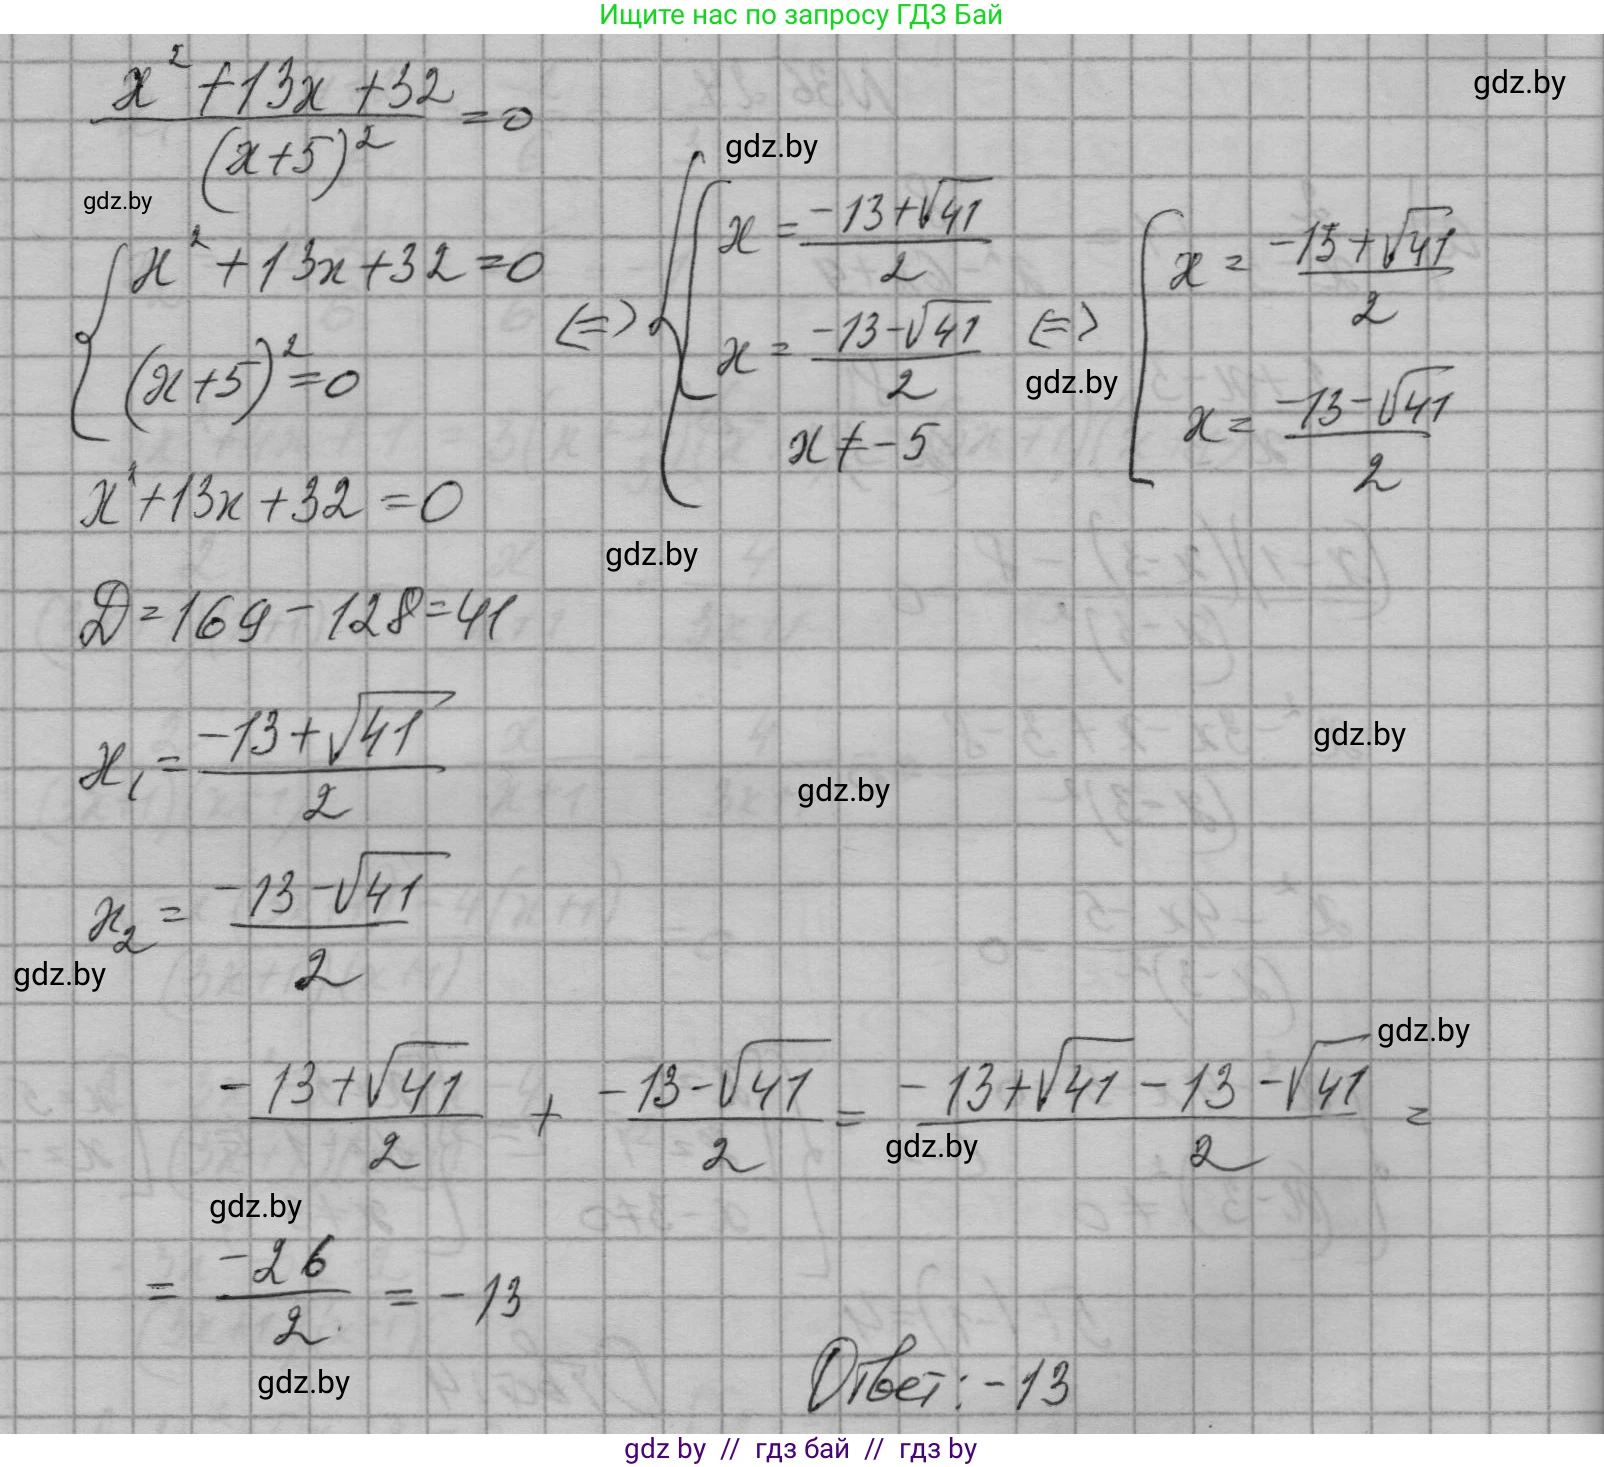 Ищите нас по запросу ГДЗ Бай
(x² + 13x + 32) / (x+5)² = 0
gdz.by
gdz.by
gdz.by
{ x² + 13x + 32 = 0
(x+5)² = 0
<=> { [ x = (-13+√41) / 2
x = (-13-√41) / 2
x ≠ -5
<=> [ x = (-13+√41) / 2
x = (-13-√41) / 2
gdz.by
x² + 13x + 32 = 0
gdz.by
Д = 169 - 128 = 41
x₁ = (-13+√41) / 2
gdz.by
gdz.by
x₂ = (-13-√41) / 2
gdz.by
gdz.by
(-13+√41) / 2 + (-13-√41) / 2 = (-13+√41 - 13 - √41) / 2 =
gdz.by
gdz.by
= -26 / 2 = -13
gdz.by
Ответ: -13
gdz by // гдз бай // гдз by